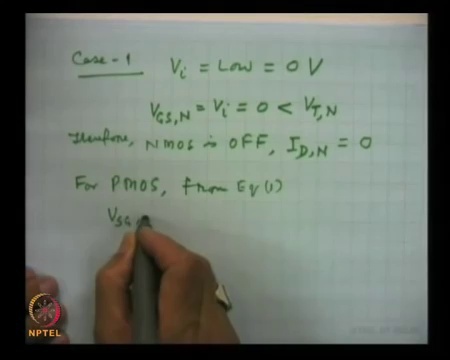 Case-1 Vi = Low = 0 V
VGS,N = Vi = 0 < VT,N
Therefore, NMOS is OFF, ID,N = 0
For PMOS, from Eq(1)
VSG
NPTEL